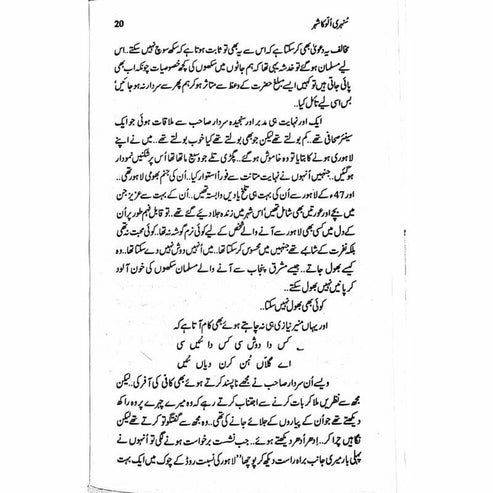 سنہری اُلّو کا شہر
20
مخالف یہ دعویٰ بھی کر سکتا ہے کہ اس سے یہ بھی تو ثابت ہوتا ہے کہ سکھ سوچ نہیں سکتے.. اس
لیے مسلمان ہو گئے تو خدشہ یہی تھا کہ ہم جاٹوں میں سکھوں کی کچھ خصوصیات چونکہ اب بھی
پائی جاتی ہیں تو کہیں ایسے مبلغ حضرت کے وعظ سے متاثر ہو کر ہم پھر سے سردار نہ ہو جائیں'
بس اسی لیے تأمل کیا..
ایک اور نہایت ہی مدبر اور سنجیدہ سردار صاحب سے ملاقات ہوئی جو ایک
سینئر صحافی تھے.. کم بولتے تھے لیکن جو بھی بولتے تھے کیا خوب بولتے تھے.. میں نے اپنے
لاہوری ہونے کا بتایا تو وہ خاموش ہو گئے.. پگڑی تلے جو وسیع ماتھا تھا اُس پر شکنیں نمودار
ہو گئیں.. جنہیں اُنہوں نے نہایت متانت سے فوراً استوار کیا.. اُن کی جنم بھومی لاہور تھی..
اور 47ء کے لاہور سے اُن کی بہت سی تلخ یادیں وابستہ تھیں.. اُن کے بہت سے عزیز جن
میں بچے اور عورتیں بھی شامل تھیں' اس شہر میں زندہ جلا دیئے گئے تھے.. تو قابل فہم طور پر اُن
کے دل میں بھی لاہور سے آنے والے شخص کے لیے کوئی نرم گوشہ نہ تھا.. کوئی محبت نہ تھی
بلکہ نفرت کے شائبے تھے جنہیں میں محسوس کر سکتا تھا.. میں اُنہیں دوش نہیں دے سکتا تھا.. وہ
کیسے بھول جاتے.. جیسے مشرقی پنجاب سے آنے والے مسلمان سکھوں کی خون آلود
کرپانیں نہیں بھول سکتے..
کوئی بھی بھول نہیں سکتا..
اور یہاں منیر نیازی ہی نہ چاہتے ہوئے بھی کام آتا ہے کہ
کس دا دوش سی کس دا نئیں سی
اے گلاں ہُن کرن دیاں نئیں
ویسے اُن سردار صاحب نے مجھے ناپسند کرتے ہوئے بھی کافی کی آفر کی.. لیکن
مجھ سے نظریں ملا کر بات کرنے سے اجتناب کرتے رہے کہ وہ میرے چہرے پر وہ راکھ
دیکھتے تھے جو اُن کے پیاروں کے جلائے جانے کی تھی.. وہ مجھ سے گفتگو تو کرتے تھے لیکن
نگاہیں چرا کر.. اِدھر اُدھر دیکھتے ہوئے.. جب نشست برخواست ہونے لگی تو اُنہوں نے
پہلی بار میری جانب براہ راست دیکھ کر پوچھا "لاہور کی نسبت روڈ کے چوک میں ایک بہت